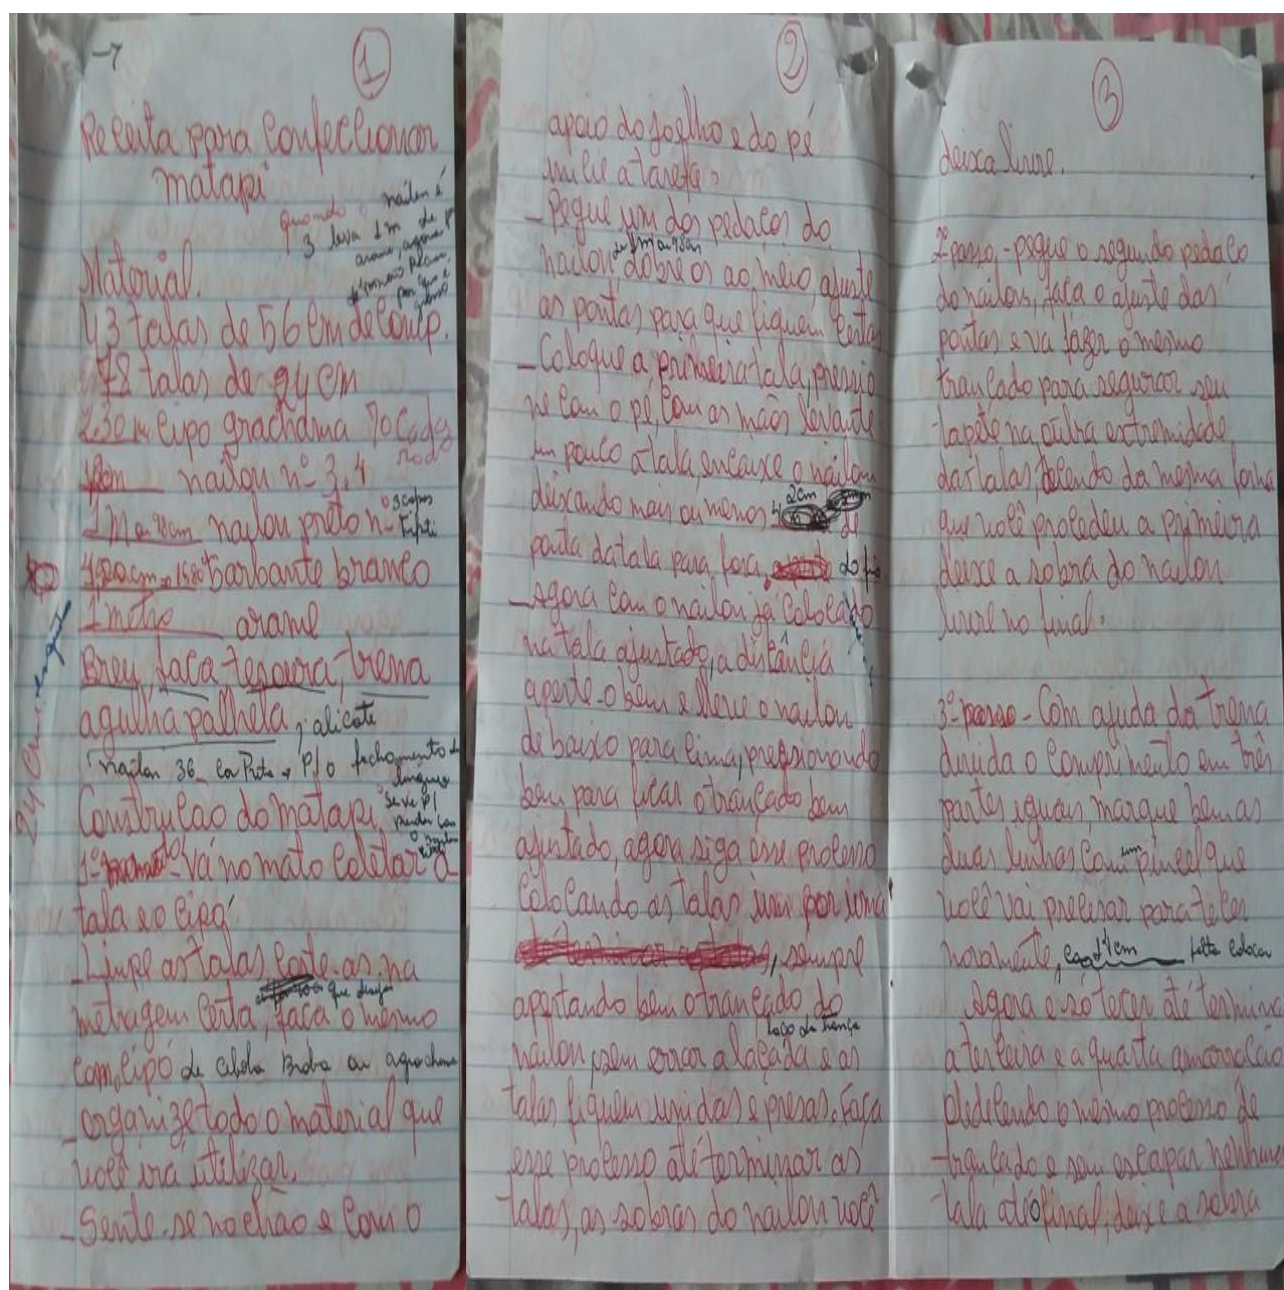 1
Receita para Confeccionar
matapi
quando o nailon é
3 leva 1m de
arame, agora
Material.
43 talas de 56 cm de comp.
78 talas de 24 cm
2.30 m cipo grachama 70 Cada
roda
nailon nº 3,4
1M ou 98cm nailon preto nº
3 cabos
barbante branco
1 metro arame
Brey faca tesoura, trena
agulha palheta, alicate
nailon 36 cor Preta P/ o fechamento da
lingua
Serve P/
Construção do matapi,
1º momento Vá no mato coletar a
tala e o cipó.
- Limpe as talas corte-as na
que deseja
metragem certa, faca o mesmo
com, cipó de cebola Braba ou agrachama
- organize todo o material que
você irá utilizar.
- Sente-se no chão e com o
24 cm
2
apoio do joelho e do pé
inicie a tarefa.
- Pegue um dos pedaços do
de 1m ou 98cm
nailon dobre os ao meio, ajuste
as pontas para que fiquem certas
- Coloque a primeira tala, pressio
ne com o pé, com as mãos levante
um pouco a tala, encaixe o nailon
2cm
deixando mais ou menos de
ponta da tala para fora. do fio
- Agora com o nailon já colocado
na tala ajustado, a distância
aperte-o bem e leve o nailon
de baixo para cima, pressionando
bem para ficar o trançado bem
ajustado, agora siga esse processo
colocando as talas uma por uma
, sempre
apertando bem o trançado do
laço da trança
nailon, sem errar a laçada e as
talas fiquem unidas e presas. Faça
esse processo até terminar as
talas, as sobras do nailon você
3
deixa livre.
2º passo - pegue o segundo pedaço
do nailon, faça o ajuste das
pontas e va fazer o mesmo
trançado para segurar seu
tapete na outra extremidade
das talas, tecendo da mesma forma
que você procedeu a primeira
deixe a sobra do nailon
livre no final.
3º passo - Com ajuda da trena
divida o comprimento em três
partes iguais marque bem as
duas linhas com um pincel que
você vai precisar para tecer
novamente, falta colocar
Agora e só tecer até termina
a terceira e a quarta amarração
obedecendo o mesmo processo de
trançado e sem escapar nenhuma
tala até o final, deixe a sobra